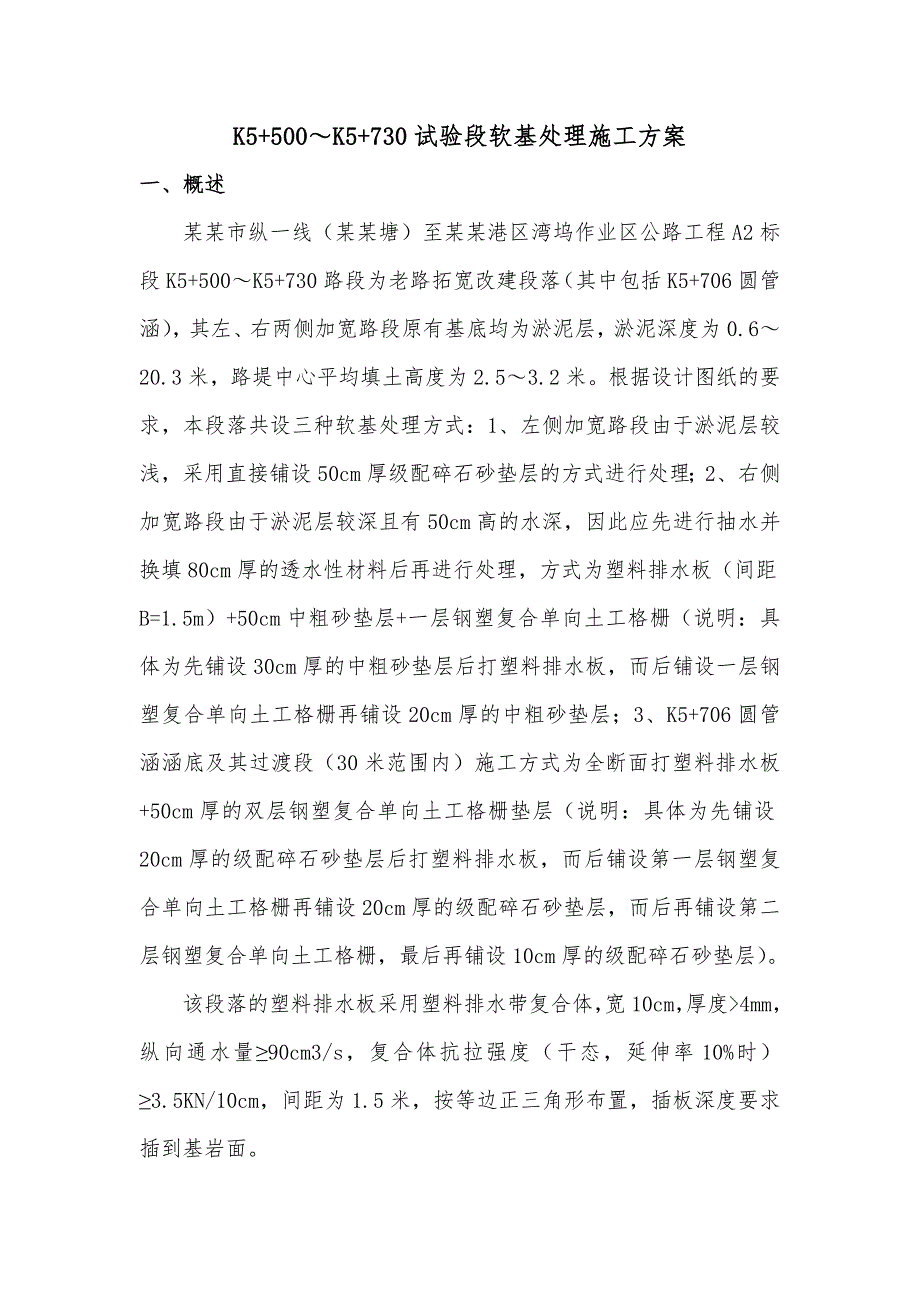 K5+500～K5+730试验段软基处理施工方案
一、概述
某某市纵一线（某某塘）至某某港区湾坞作业区公路工程A2标
段K5+500～K5+730路段为老路拓宽改建段落(其中包括K5+706圆管
涵),其左、右两侧加宽路段原有基底均为淤泥层,淤泥深度为0.6～
20.3米，路堤中心平均填土高度为2.5～3.2米。根据设计图纸的要
求，本段落共设三种软基处理方式：1、左侧加宽路段由于淤泥层较
浅，采用直接铺设50cm厚级配碎石砂垫层的方式进行处理；2、右侧
加宽路段由于淤泥层较深且有50cm高的水深，因此应先进行抽水并
换填80cm厚的透水性材料后再进行处理，方式为塑料排水板（间距
B=1.5m）+50cm中粗砂垫层+一层钢塑复合单向土工格栅（说明：具
体为先铺设30cm厚的中粗砂垫层后打塑料排水板，而后铺设一层钢
塑复合单向土工格栅再铺设20cm厚的中粗砂垫层；3、K5+706圆管
涵涵底及其过渡段（30米范围内）施工方式为全断面打塑料排水板
+50cm厚的双层钢塑复合单向土工格栅垫层（说明：具体为先铺设
20cm厚的级配碎石砂垫层后打塑料排水板，而后铺设第一层钢塑复
合单向土工格栅再铺设20cm厚的级配碎石砂垫层，而后再铺设第二
层钢塑复合单向土工格栅，最后再铺设10cm厚的级配碎石砂垫层）。
该段落的塑料排水板采用塑料排水带复合体,宽10cm,厚度>4mm,
纵向通水量≥90cm3/s，复合体抗拉强度（干态，延伸率10%时）
≥3.5KN/10cm，间距为1.5米，按等边正三角形布置，插板深度要求
插到基岩面。